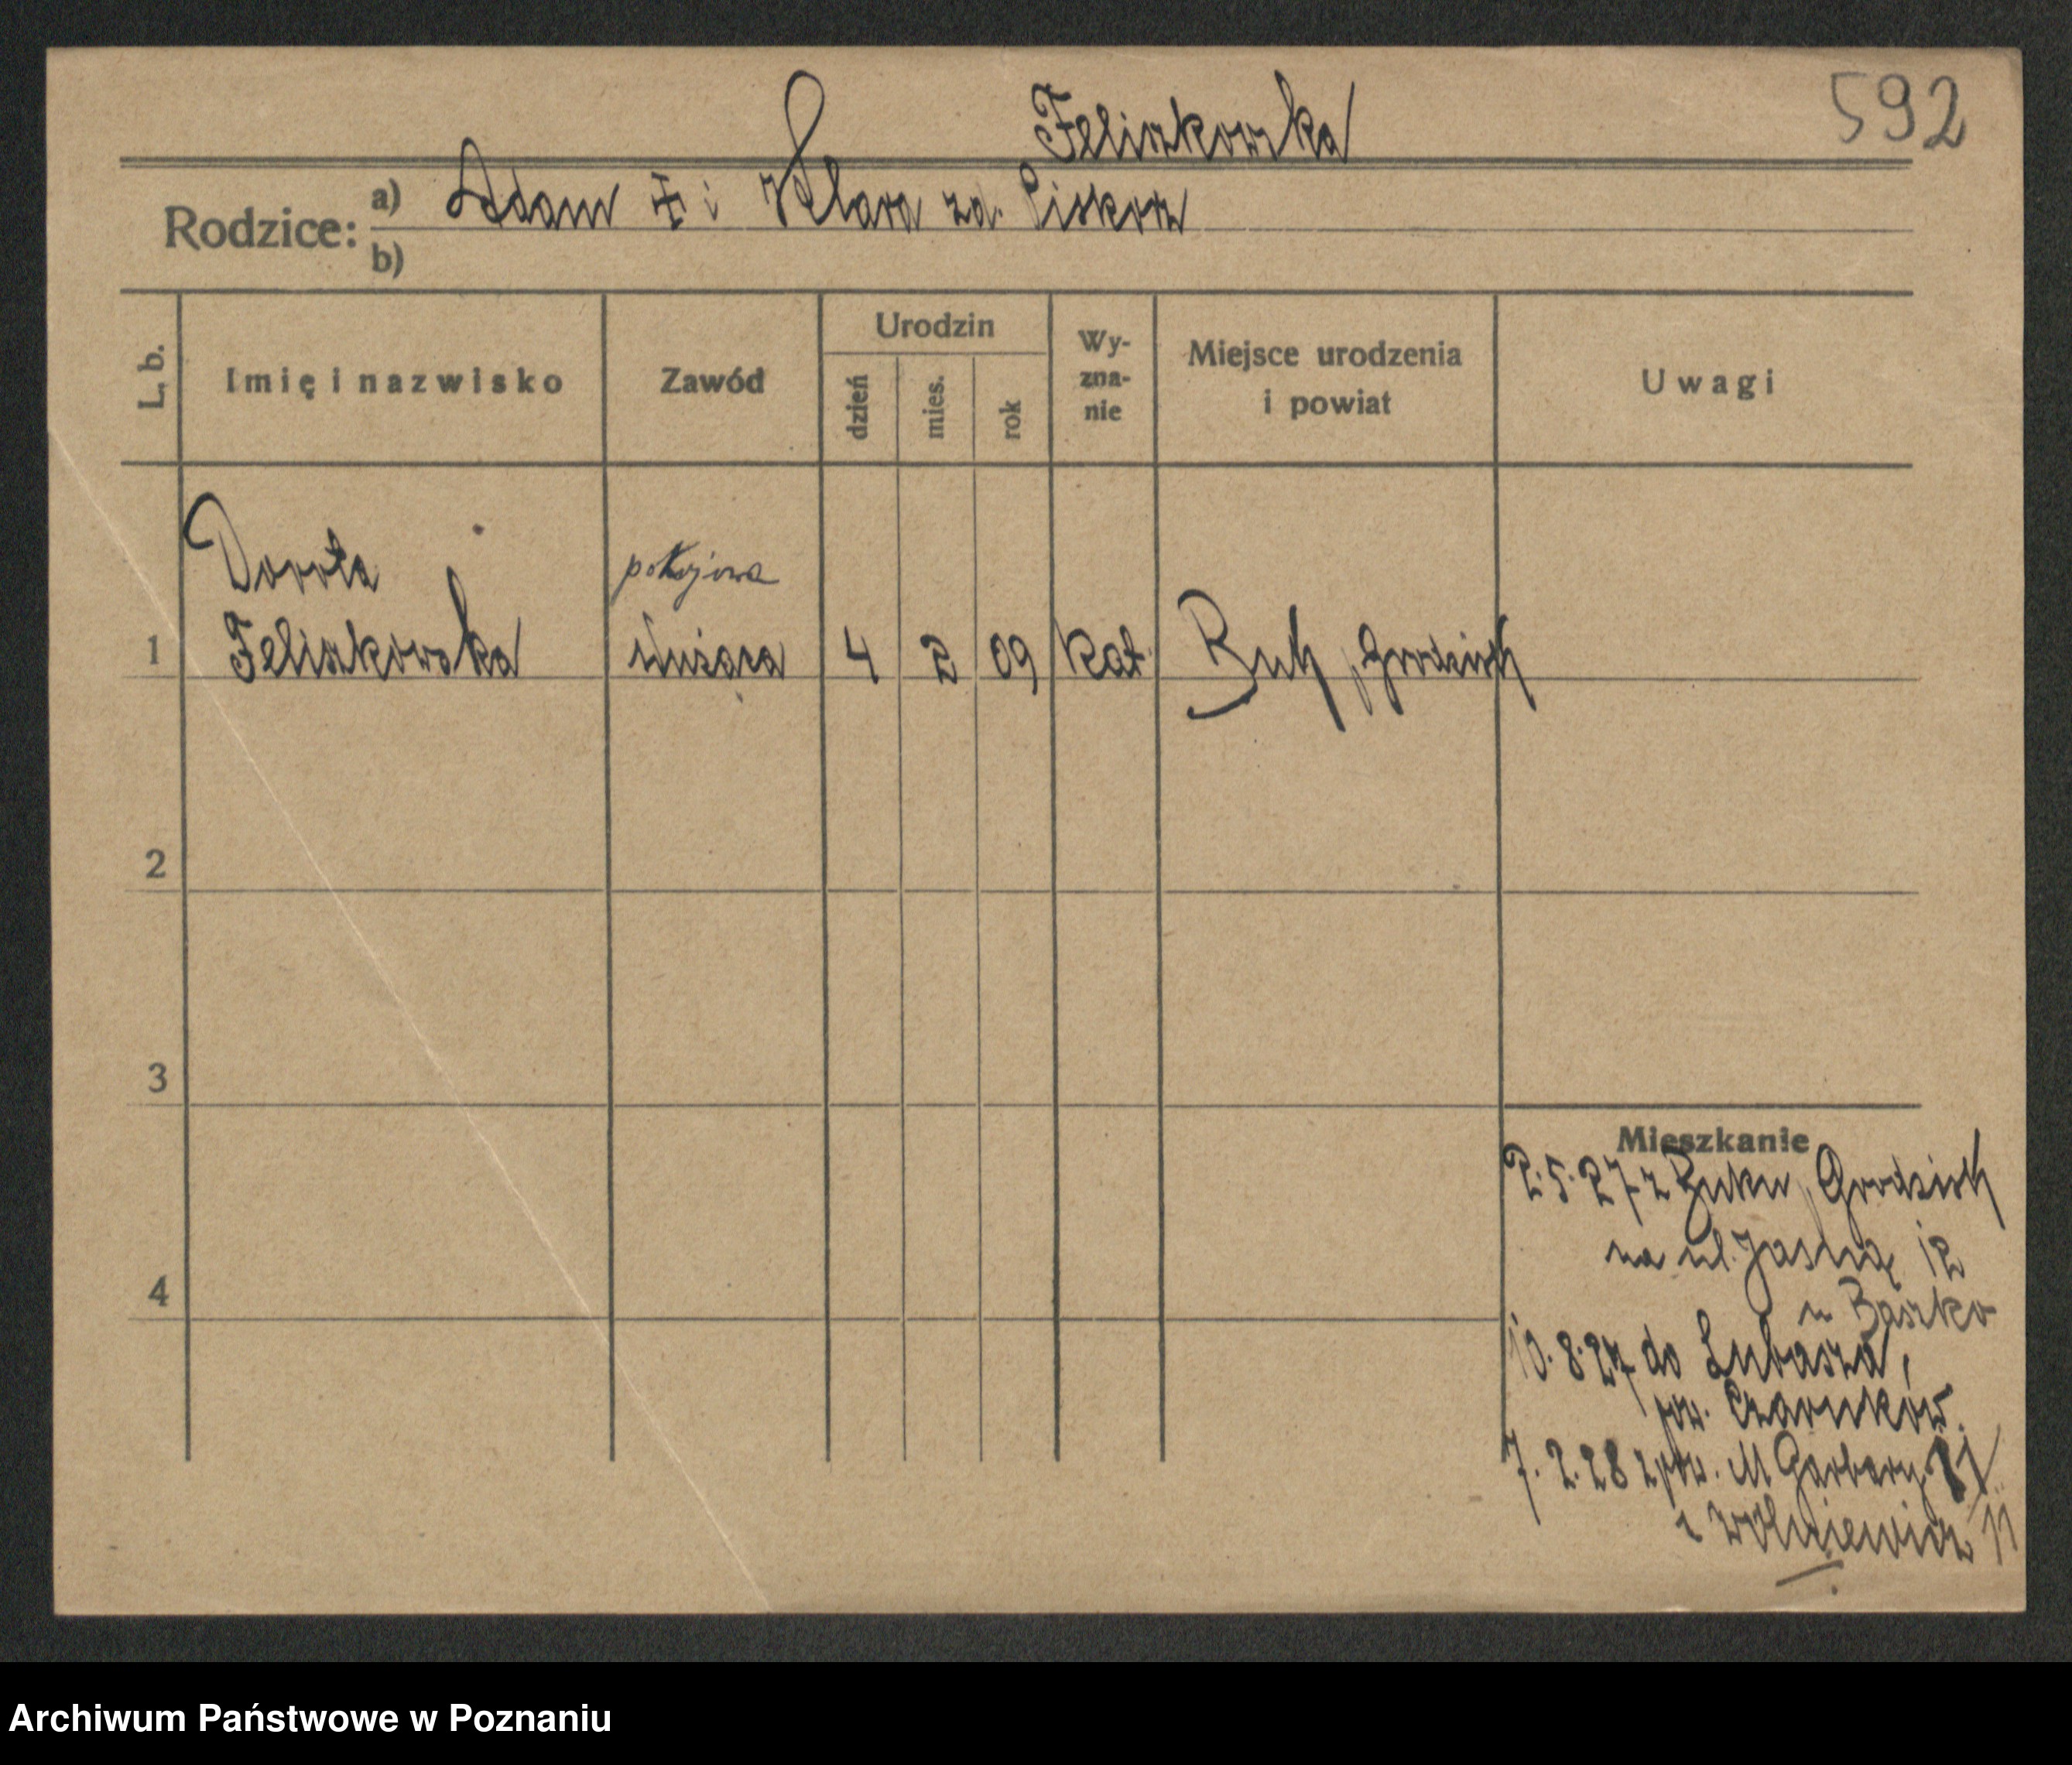 Feliszkowska
592
Rodzice:
a) Adam ‡ i Klara zd. Piskorz
b)
L. b.
Imię i nazwisko
Zawód
Urodzin
dzień
mies.
rok
Wy-
zna-
nie
Miejsce urodzenia
i powiat
Uwagi
Dorota
pokojowa
1 Feliszkowska służąca 4 2 09 kat. Buk, Grodzisk
2
3
4
Mieszkanie
2.5.27 z Buku, Grodzisk
na ul. Jasną 12
u Baszko
10.8.27 do Lubasza,
pow. Czarnków.
7.2.28 z pow. M Garbary
Archiwum Państwowe w Poznaniu